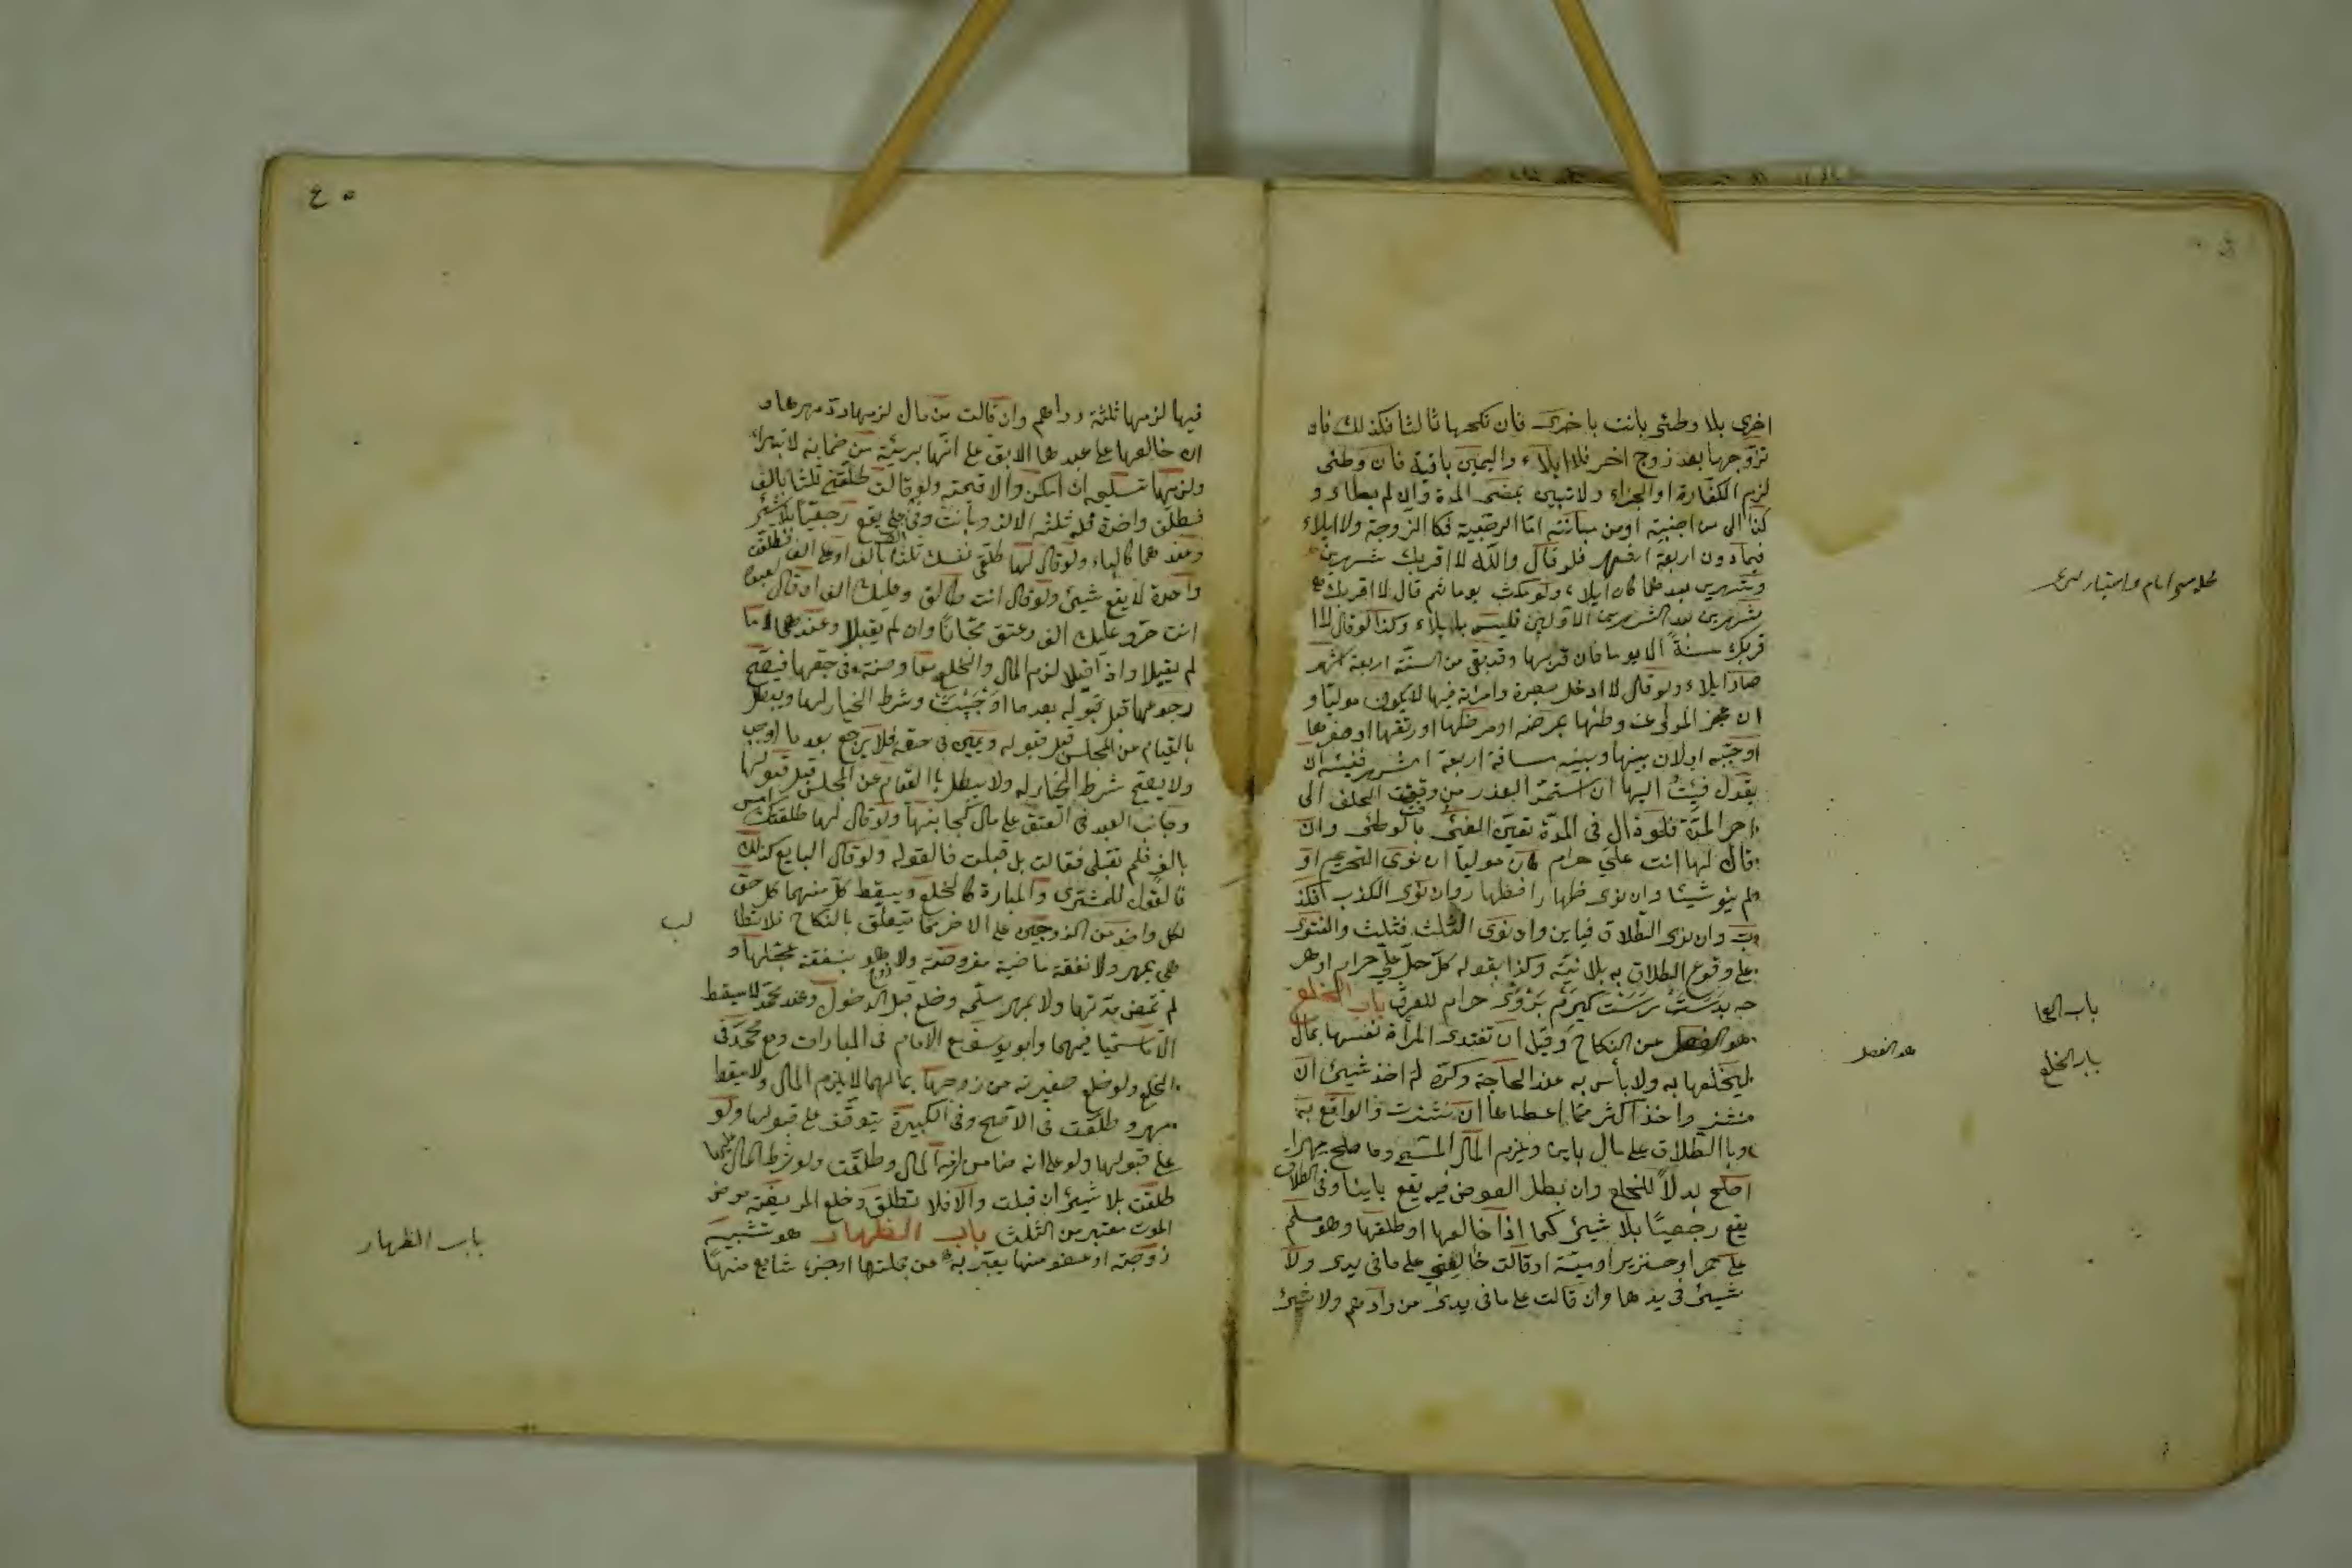 اخرى بلا وطئى بانت باخرى فان نكحها ثالثا فكذلك فان
تزوجها بعد زوج اخر فلا ايلاء واليمين باقية فان وطئى
لزم الكفارة او الجزاء ولا تبين بمضى المدة وان لم يطاء و
كذا الى من اجنبية او من مبانته اما الرجعية فكالزوجة ولا ايلاء
فيما دون اربعة اشهر فلو قال والله لا اقربك شهرين
وشهرين بعدهما كان ايلاء ولو مكث يوما ثم قال لا اقربك
شهرين بعد الشهرين الاولين فليس بايلاء وكذا لو قال لا ا
قربك سنة الا يوما فان قربها وقد بقى من السنة اربعة اشهر
صار ايلاء ولو قال لا ادخل بصرة وامراته فيها لا يكون موليا و
ان عجز المولى عن وطئها بمرضه او مرضها او رتقها او صغرها
او جبه او لان بينها وبينه مسافة اربعة اشهر ففيئه ان
يقول فيئت اليها ان استمر العذر من وقت الحلف الى
اخر المدة فلو زال فى المدة تعين الفئى بالوطئى وان
قال لها انت على حرام كان موليا ان نوى التحريم او
لم ينو شيئا وان نوى ظهارا فظهار وان نوى الكذب فكذ
ب وان نوى الطلاق فباين وان نوى الثلث فثلث والفتوى
على وقوع الطلاق به بلا نية وكذا بقوله كل حل على حرام او هر
جه بدست رست كيرم بر وى حرام للعرف باب الخلع
هو الفصل من النكاح وقيل ان تفتدى المراة نفسها بمال
ليخلعها به ولا بأس به عند الحاجة وكره له اخذ شيئ ان
نشز واخذ اكثر مما اعطاها ان نشزت والواقع به
وبالطلاق على مال باين ويلزم المال المسمى وما صلح مهرا
صلح بدلا للخلع وان بطل العوض فيه يقع باينا وفى الطلاق
يقع رجعيا بلا شيئ كما اذا خالعها او طلقها وهو مسلم
على خمر او خنزير او ميتة او قالت خالعنى على ما فى يدى ولا
شيئ فى يدها وان قالت على ما فى يدى من دراهم ولا شيئ
باب الخلع
هو الفصل
٤٥
فيها لزمها ثلثة دراهم وان قالت من مال لزمها رد مهرها و
ان خالعها على عبدها الابق على انها بريئة من ضمانه لا تبراء
ولزمها تسليمه ان امكن والا قيمته ولو قالت طلقنى ثلثا بالف
فطلق واحدة فله ثلث الالف وبانت وفى على يقع رجعيا بلا شيئ
وعندهما كالباء ولو قال لها طلقى نفسك ثلثا بالف او على الف فطلقت
واحدة لا يقع شيئ ولو قال انت طالق وعليك الف او قال لعبده
انت حر وعليك الف وعتق مجانا وان لم يقبلا وعندهما ما
لم يقبلا واذا قبلا لزم المال والخلع معاوضة فى حقها فيصح
رجوعها قبل قبوله بعد ما اوجبت وشرط الخيار لها ويبطل
بالقيام عن المجلس قبل قبوله ويمين فى حقه فلا يرجع بعد ما اوجب
ولا يصح شرط الخيار له ولا يبطل بالقيام عن المجلس قبل قبولها
وجانب العبد فى العتق على مال كجانبها ولو قال لها طلقتك امس
بالف فلم تقبلى فقالت بل قبلت فالقول له ولو قال البايع كذلك
فالقول للمشترى والمباراة كالخلع ويسقط كل منهما كل حق
لكل واحد من الزوجين على الاخر مما يتعلق بالنكاح فلا تطا
لب
هى بمهر ولا نفقة ماضية مفروضة ولا هو بنفقة عجلها و
لم تمض مدتها ولا بمهر سلمه وخلع قبل الدخول وعند محمد لا يسقط
الا ما سميا فيهما وابو يوسف مع الامام فى المبارات ومع محمد فى
الخلع ولو خلع صغيرته من زوجها بمالها لا يلزم المال ولا يسقط
مهر وطلقت فى الاصح وفى الكبيرة يتوقف على قبولها ولو
على قبولها ولو على انه ضامن لزمه المال وطلقت ولو شرط المال عليها
طلقت بلا شيئ ان قبلت والا فلا تطلق وخلع المريضة مرض
الموت معتبر من الثلث باب الظهار هو تشبيه
زوجته او عضو منها يعبر به عن جملتها او جزء شايع منها
باب الظهار